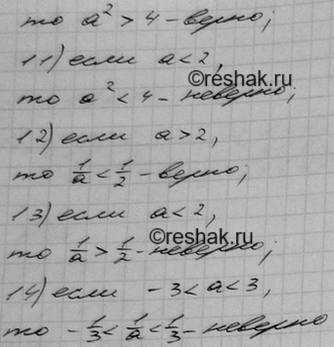 то a² > 4 - верно;
11) если a < 2,
©reshak.ru
то a² < 4 - неверно;
12) если a > 2,
то 1/a < 1/2 - верно;
13) если a < 2,
©reshak.ru
то 1/a > 1/2 - неверно,
14) если -3 < a < 3,
то -1/3 < 1/a < 1/3 - неверно